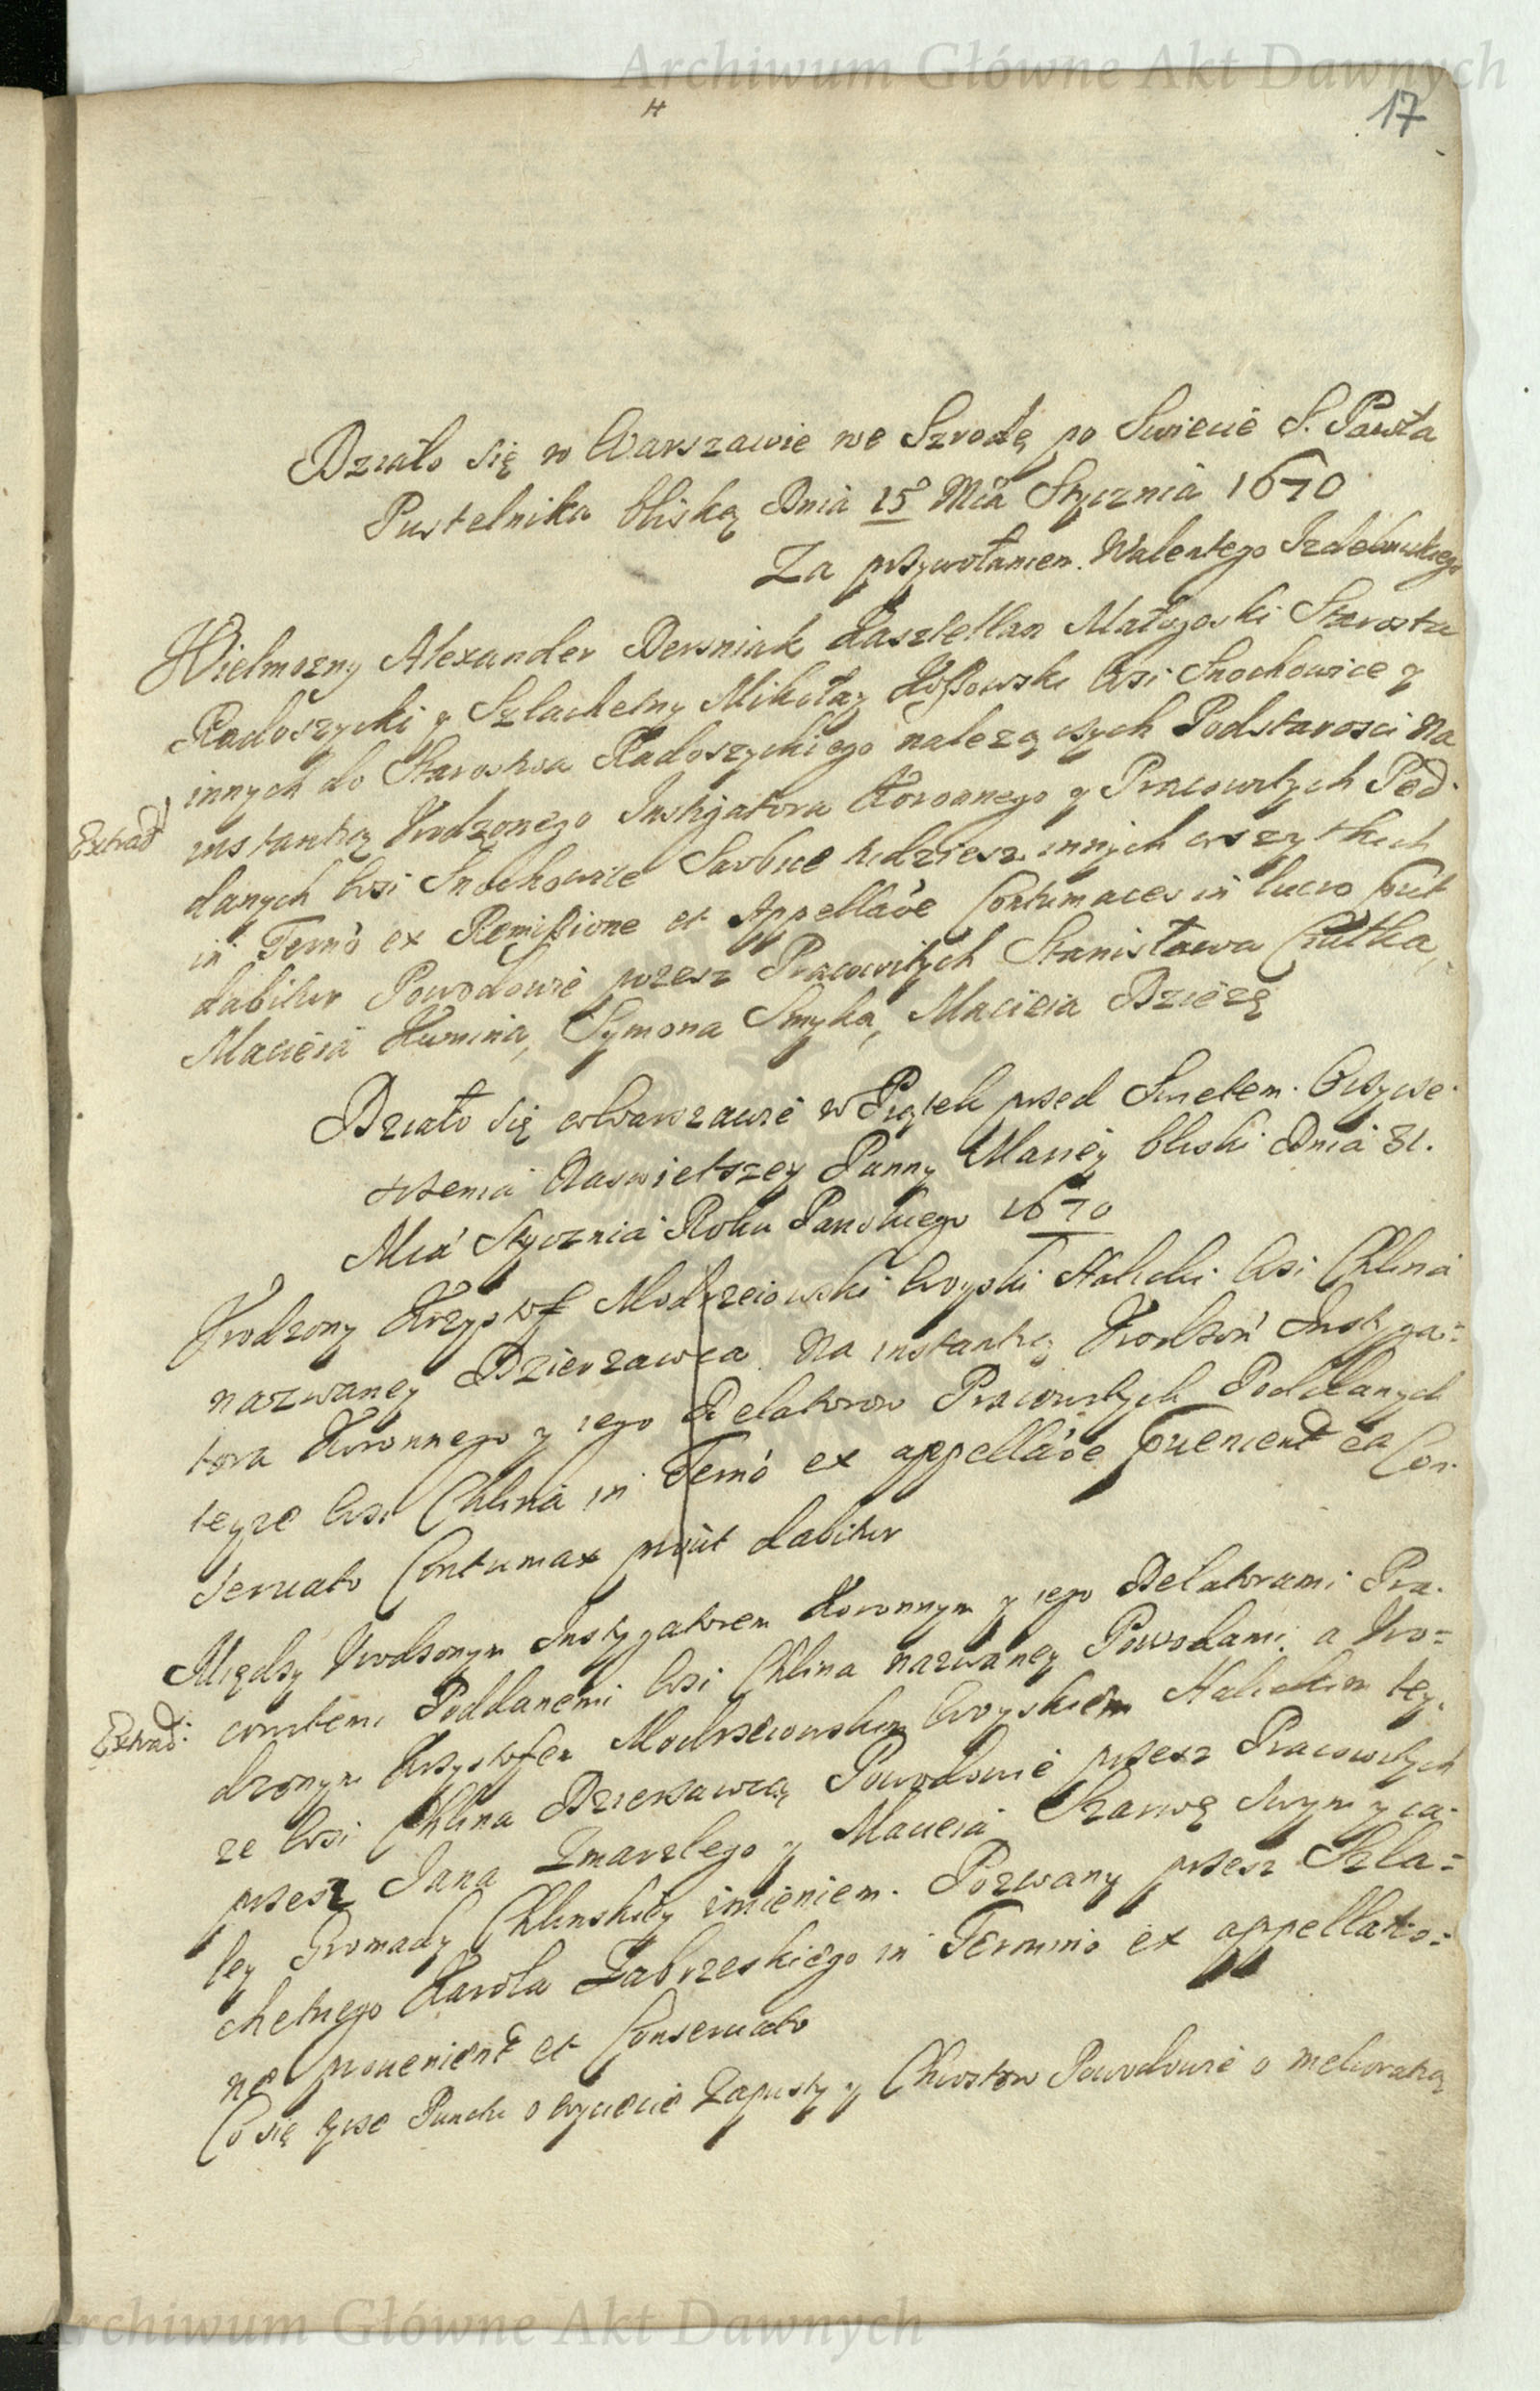 Archiwum Główne Akt Dawnych
17
Działo się w Warszawie we Szrodę po Swiecie S. Pawła
Pustelnika bliską Dnia 15° Mca Stycznia 1670
Za przywołaniem Walentego Izdebnskiego
Wielmozny Alexander Dersniak Kasztellan Małogoski Starosta
Radoszycki y Szlachetny Mikołay Kossowski Wsi Snochowice y
innych do Starostwa Radoszyckiego nalezących Podstarosci Na
Extrad
instantią Vrodzonego Instigatora Koronnego y Pracowitych Pod
danych Wsi Snochowice Sarbice tudziesz innych wszytkich
in Termo ex Remissione et Appellaoe Contumaces in lucro prut
dabitur Powodowie przesz Pracowitych Stanisława
Macieia Kumina, Symona Smyka, Macieia Dzieżę
Działo się w Warszawie w Piątek przed Swietem Oczysc
sczenia Naswietszey Panny Mariey bliski Dnia 31.
Mca Stycznia Roku Panskiego 1670
Vrodzony Krzysztof Modrzeiowski Woyski Halicki Wsi Chlina
nazwaney Dzierzawca Na instantią Vrodzon Instyga=
tora Koronnego y iego Delatorow Pracowitych Poddanych
teyze Wsi Chlina in Termo ex appellaoe prouenient ea Con
seruato Contumax prout dabitur
Między Vrodzonym Instygatorem Koronnym y iego Delatorami Pra
cowitemi Poddanemi Wsi Chlina nazwaney Powodami a Vro=
Extrad:
dzonym Krzysztofem Modrzeiowskim Woyskiem Halickim tey
ze Wsi Chlina Dzierzawcą Powodowie przesz Pracowitych
przesz Jana Zmarzlego y Macieia Szarwę swym y ca
ley Gromady Chlinskiey imieniem. Pozwany przesz Szla=
chetnego Karola Zabrzeskiego in Termino ex appellatio=
ne prouenient et Conseruato
Co się tycse Punctu o wycięcie Zapusty y Chrostow Powodowie o melioratią
Archiwum Główne Akt Dawnych